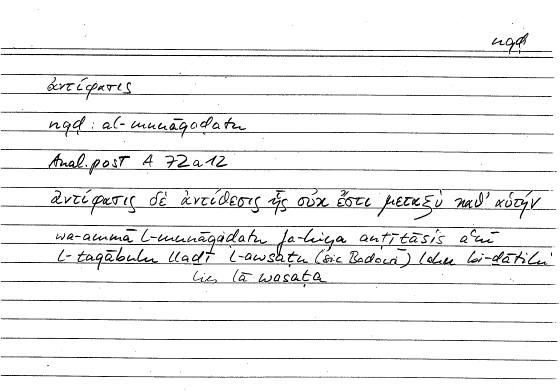 nqḍ
ἀντίφασις
nqḍ: al-munāqaḍatu
Anal. post A 72a12
ἀντίφασις δὲ ἀντίθεσις ἧς οὐκ ἔστι μεταξὺ καθ' αὑτήν
wa-ammā l-munāqaḍatu fa-hiya antīṯāsis aʿnī
l-taqābulu llaḏī l-awsaṭu (sic Badawī) lahu bi-ḏātihi
lies lā wasaṭa